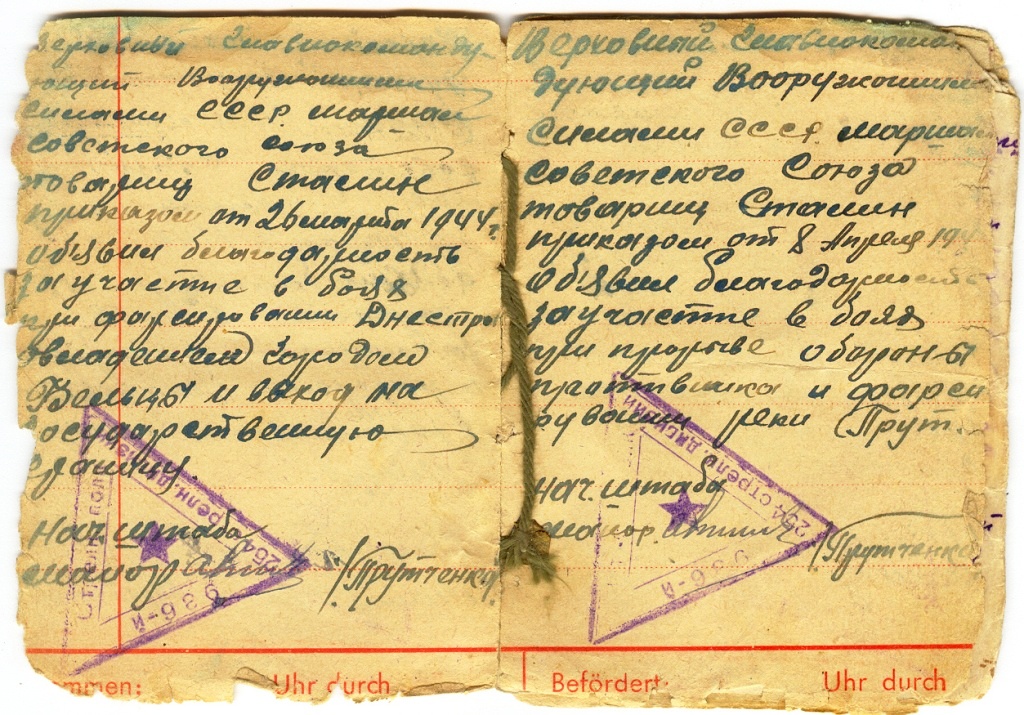 Верховный Главнокоманду-
ющий Вооруженными
силами СССР маршал
советского союза
товарищ Сталин
приказом от 26 марта 1944 г.
объявил благодарность
за участие в боях
при форсировании Днестра
овладением городом
Бельцы и выход на
государственную
границу.
Нач. штаба
майор /Прутченко/
936-й
254
стрелн. дивизи
Uhr durch
Верховный Главнокоман
дующий Вооруженными
силами СССР маршал
советского Союза
товарищ Сталин
приказом от 8 Апреля 194
Объявил благодарность
за участие в боях
при прорыве обороны
противника и форси
рувании реки Прут.
нач. штаба
майор /Прутченко
936-й
254 стрелк. дивизии
Befördert:
Uhr durch